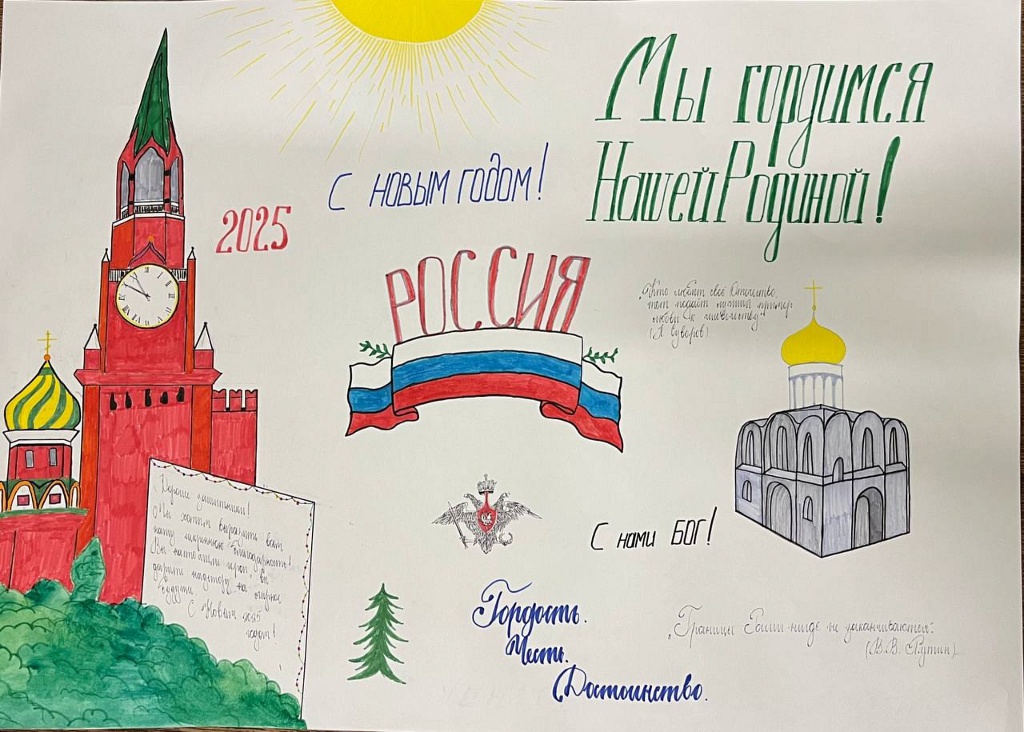 Мы гордимся
Нашей Родиной!
С НОВЫМ ГОДОМ!
2025
РОССИЯ
"Кто любит своё Отечество,
тот подаёт лучший пример
любви к человечеству"
(А. Суворов)
Дорогие защитники!
Мы хотим выразить вам
нашу искреннюю благодарность!
Вы настоящие герои, вы
дарите надежду на мирное
будущее
С Новым 2025
годом!
С нами БОГ!
Гордость.
Честь.
Достоинство.
"Границы России нигде не заканчиваются".
(В.В. Путин)